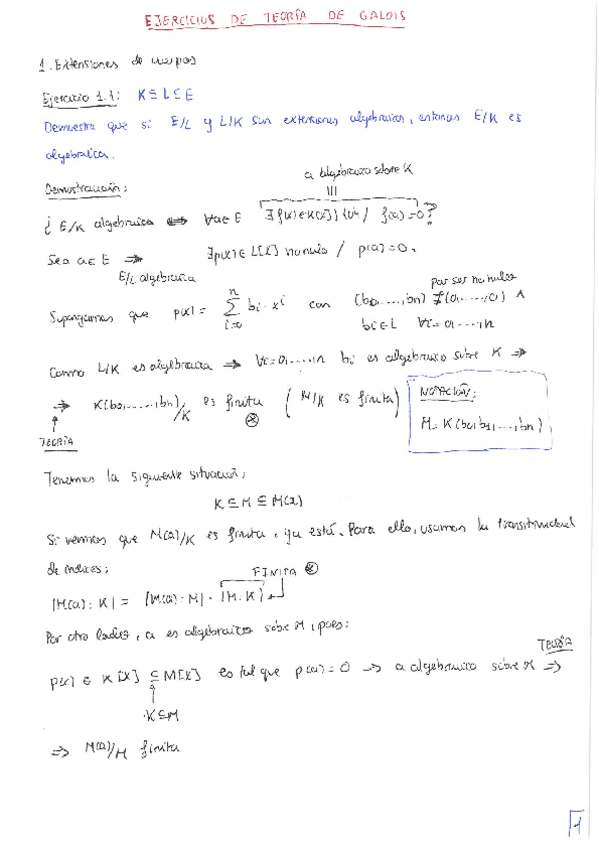 EJERCICIOS DE TEORÍA DE GALOIS
1. Extensiones de cuerpos
Ejercicio 1.1: K ⊆ L ⊆ E
Demuestra que si E/L y L/K son extensiones algebraicas, entonces E/K es
algebraica.
a algebraico sobre K
Demostración:
¿E/K algebraica ⟺ ∀a∈E ∃f(x)∈K[x]\{0} / f(a)=0?
Sea a∈E ⟹ ∃p(x)∈L[X] no nulo / p(a)=0.
E/L algebraica
por ser no nulo
Supongamos que p(x) = ∑_{i=0}^{n} bi·x^i con (b0,...,bn) ≠ (0,...,0) ∧
bi∈L ∀i=0,...,n
Como L/K es algebraica ⟹ ∀i=0,...,n bi es algebraico sobre K ⟹
⟹ K(b0,...,bn)/K es finita (M/K es finita)
⊛
TEORÍA
NOTACIÓN:
M=K(b0,b1,...,bn)
Tenemos la siguiente situación:
K ⊆ M ⊆ M(a)
Si vemos que M(a)/K es finita, ya está. Para ello, usamos la transitividad
de índices:
FINITA ⊛
|M(a):K| = |M(a):M|·|M:K|
Por otro lado, a es algebraico sobre M, pues:
TEORÍA
p(x) ∈ K[X] ⊆ M[X] es tal que p(a)=0 → a algebraico sobre M ⟹
K⊆M
⟹ M(a)/M finita
1